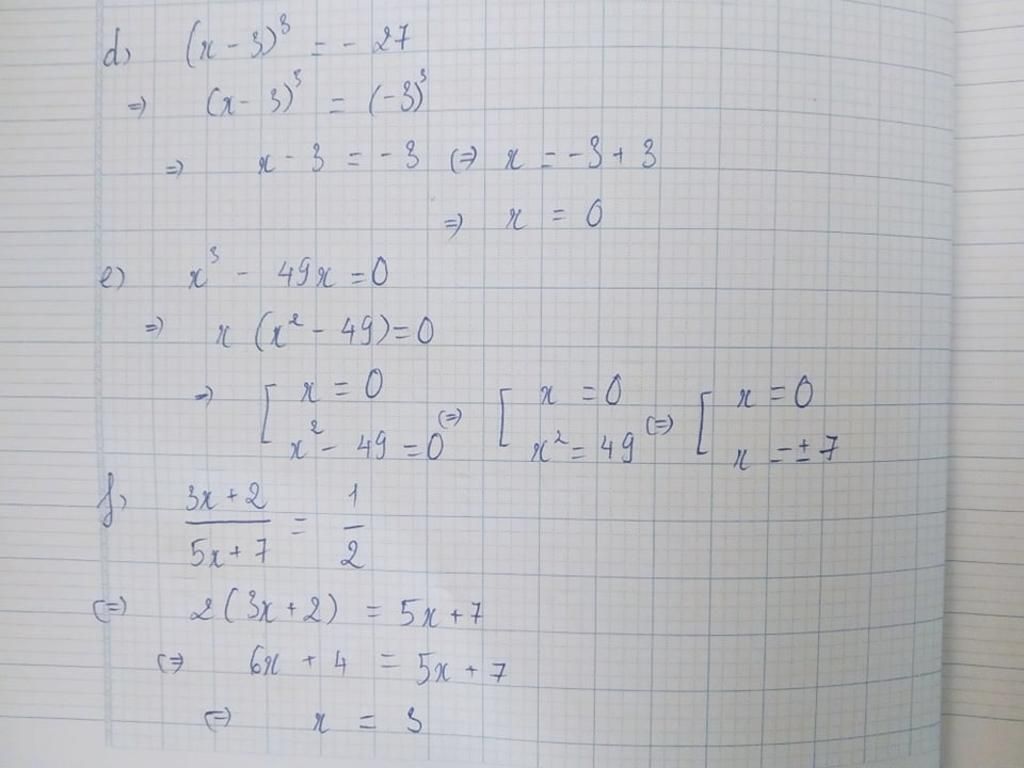 d, (x - 3)³ = - 27
=> (x - 3)³ = (-3)³
=> x - 3 = -3 <=> x = -3 + 3
=> x = 0
e) x³ - 49x = 0
=> x (x² - 49) = 0
=> [ x = 0 <=> [ x = 0 <=> [ x = 0
x² - 49 = 0 x² = 49 x = ± 7
f, (3x + 2)/(5x + 7) = 1/2
<=> 2 (3x + 2) = 5x + 7
<=> 6x + 4 = 5x + 7
<=> x = 3